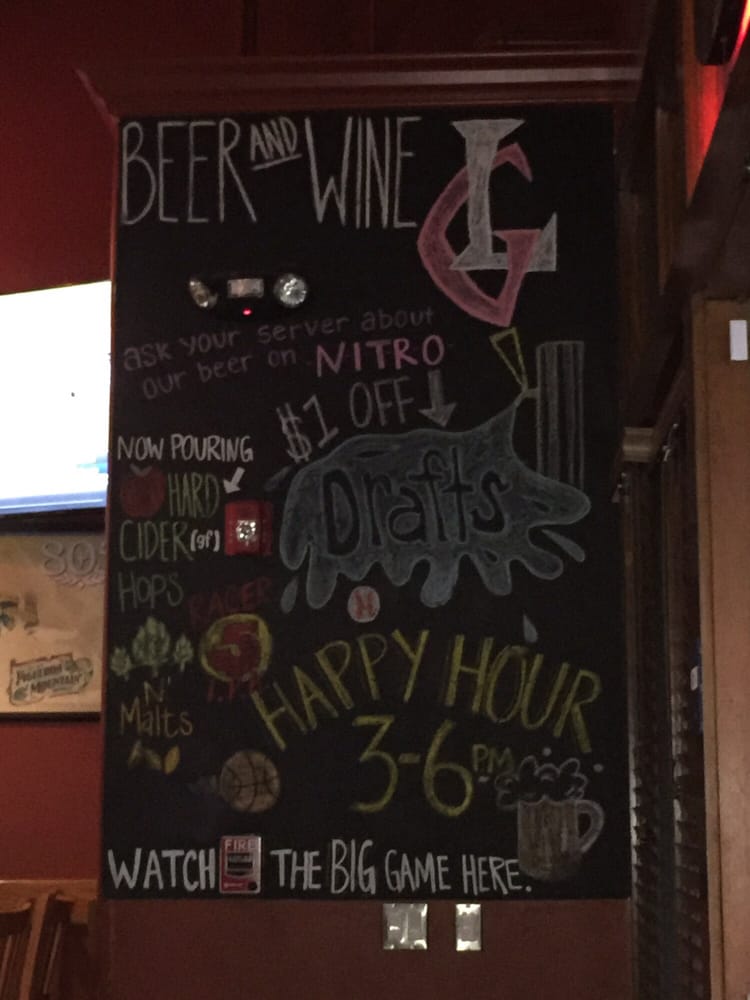 BEER AND WINE
LG
ask your server about
our beer on NITRO
$1 OFF
Drafts
NOW POURING
HARD
CIDER (gf)
HOPS
RACER
5
I.P.A
N'
Malts
HAPPY HOUR
3-6 PM
WATCH THE BIG GAME HERE.
FIRE
MOUNTAIN